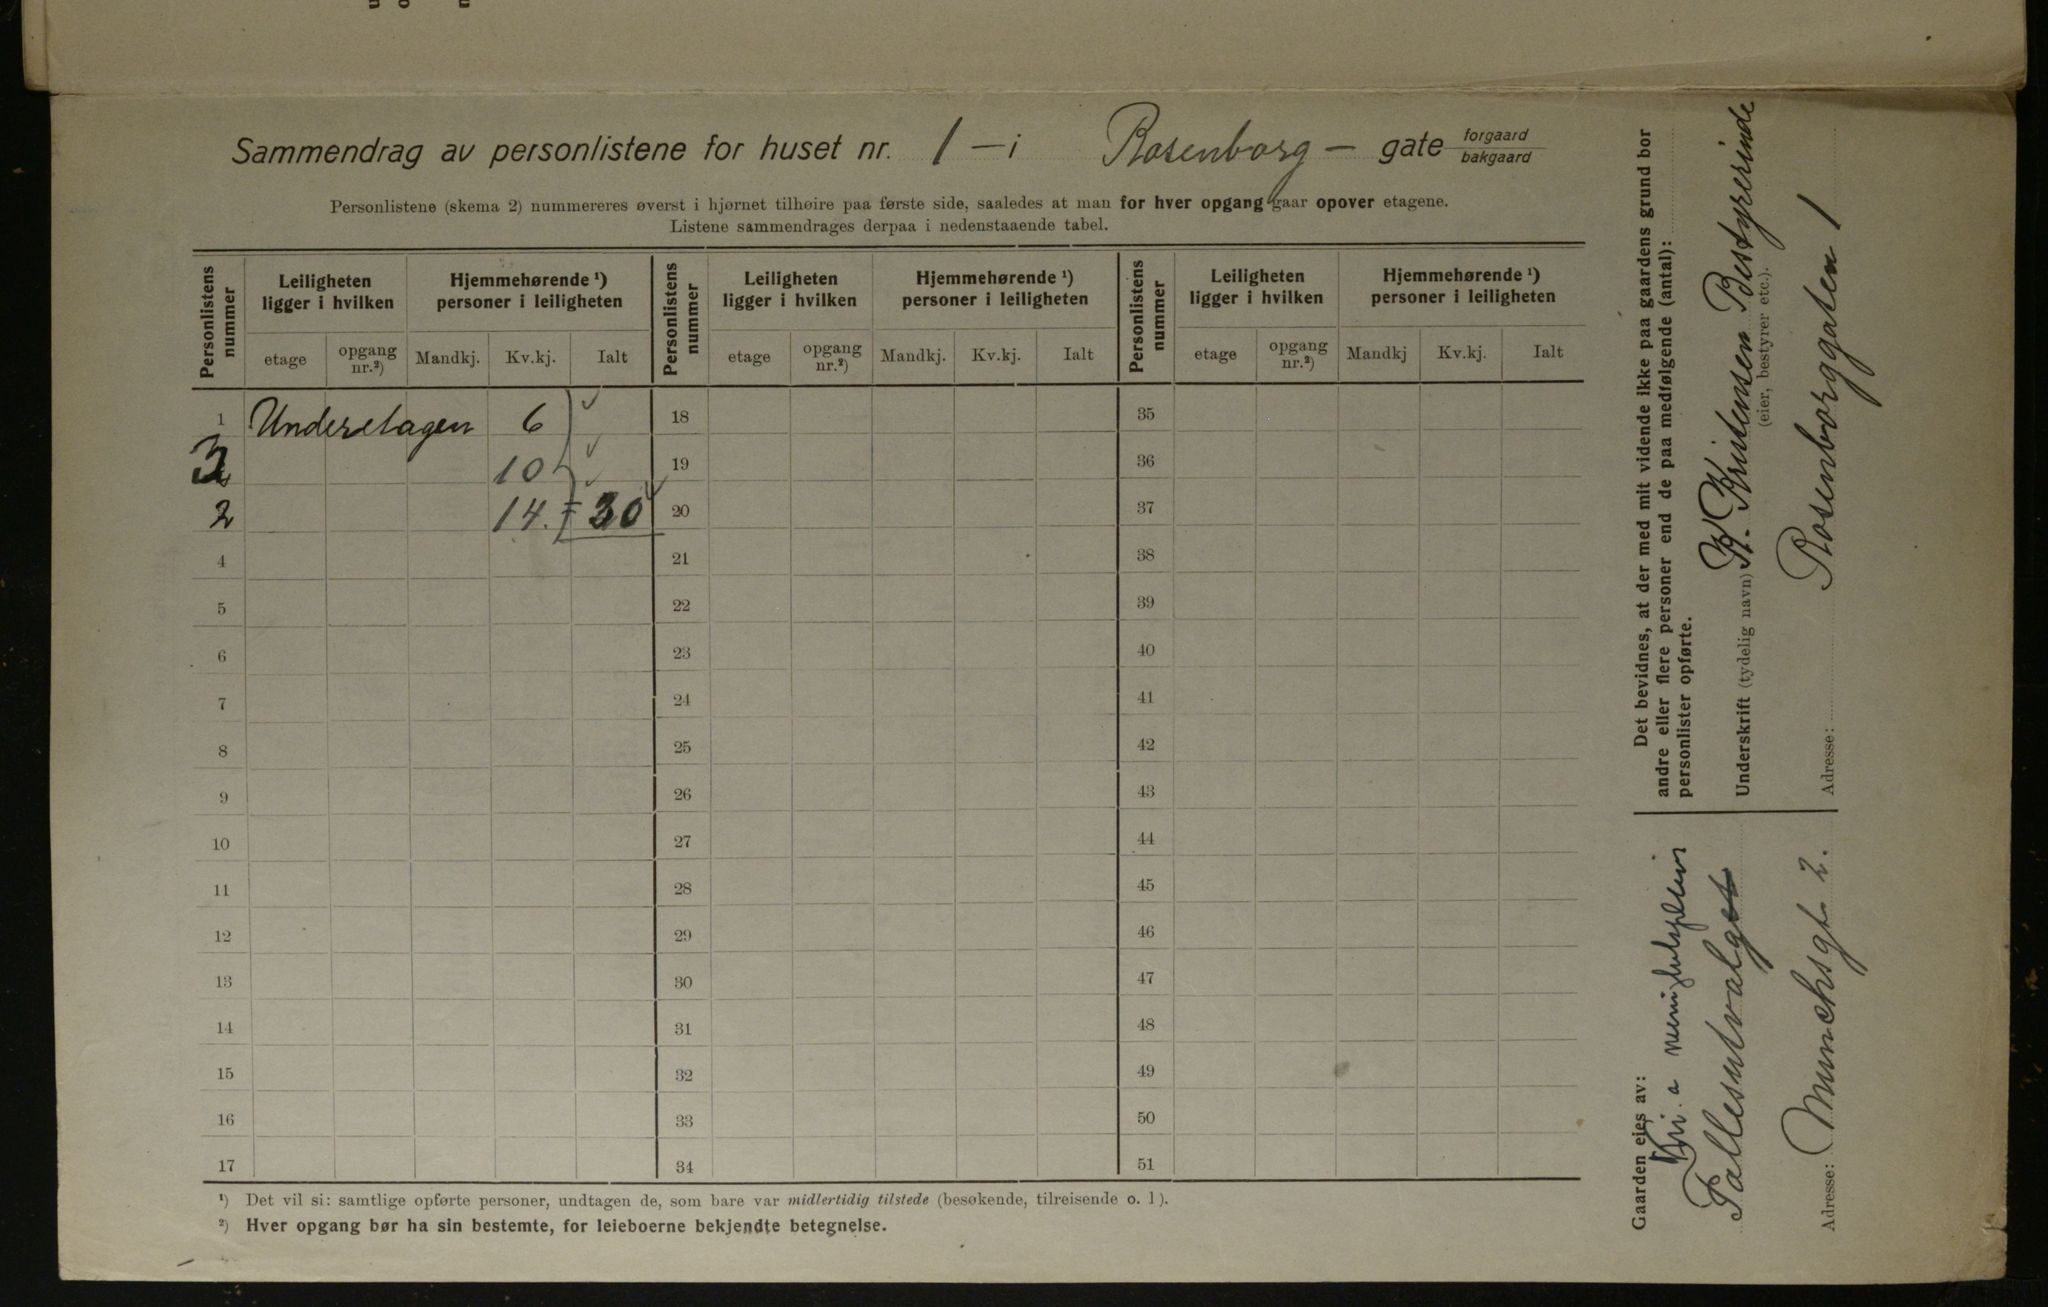 Sammendrag av personlistene for huset nr. 1 – i Rosenborg – gate forgaard bakgaard
Personlistene (skema 2) nummereres øverst i hjørnet tilhøire paa første side, saaledes at man for hver opgang gaar opover etagene.
Listene sammendrages derpaa i nedenstaaende tabel.
Personlistens nummer
Leiligheten ligger i hvilken
Hjemmehørende ¹) personer i leiligheten
Personlistens nummer
Leiligheten ligger i hvilken
Hjemmehørende ¹) personer i leiligheten
Personlistens nummer
Leiligheten ligger i hvilken
Hjemmehørende ¹) personer i leiligheten
etage opgang nr.²) Mandkj. Kv.kj. Ialt etage opgang nr.²) Mandkj. Kv.kj. Ialt etage opgang nr.²) Mandkj Kv.kj. Ialt
1 Underetagen 6 18 35
3 10 19 36
2 14. = 30 20 37
4 21 38
5 22 39
6 23 40
7 24 41
8 25 42
9 26 43
10 27 44
11 28 45
12 29 46
13 30 47
14 31 48
15 32 49
16 33 50
17 34 51
¹) Det vil si: samtlige opførte personer, undtagen de, som bare var midlertidig tilstede (besøkende, tilreisende o. l).
²) Hver opgang bør ha sin bestemte, for leieboerne bekjendte betegnelse.
Det bevidnes, at der med mit vidende ikke paa gaardens grund bor
andre eller flere personer end de paa medfølgende (antal):
personlister opførte.
Underskrift (tydelig navn) K. Kristensen Bestyrerinde
(eier, bestyrer etc.).
Adresse: Rosenborggaten 1
Gaarden eies av:
Kri.a menighetspleies
Fællesutvalget
Adresse: Munchsgt. 2.